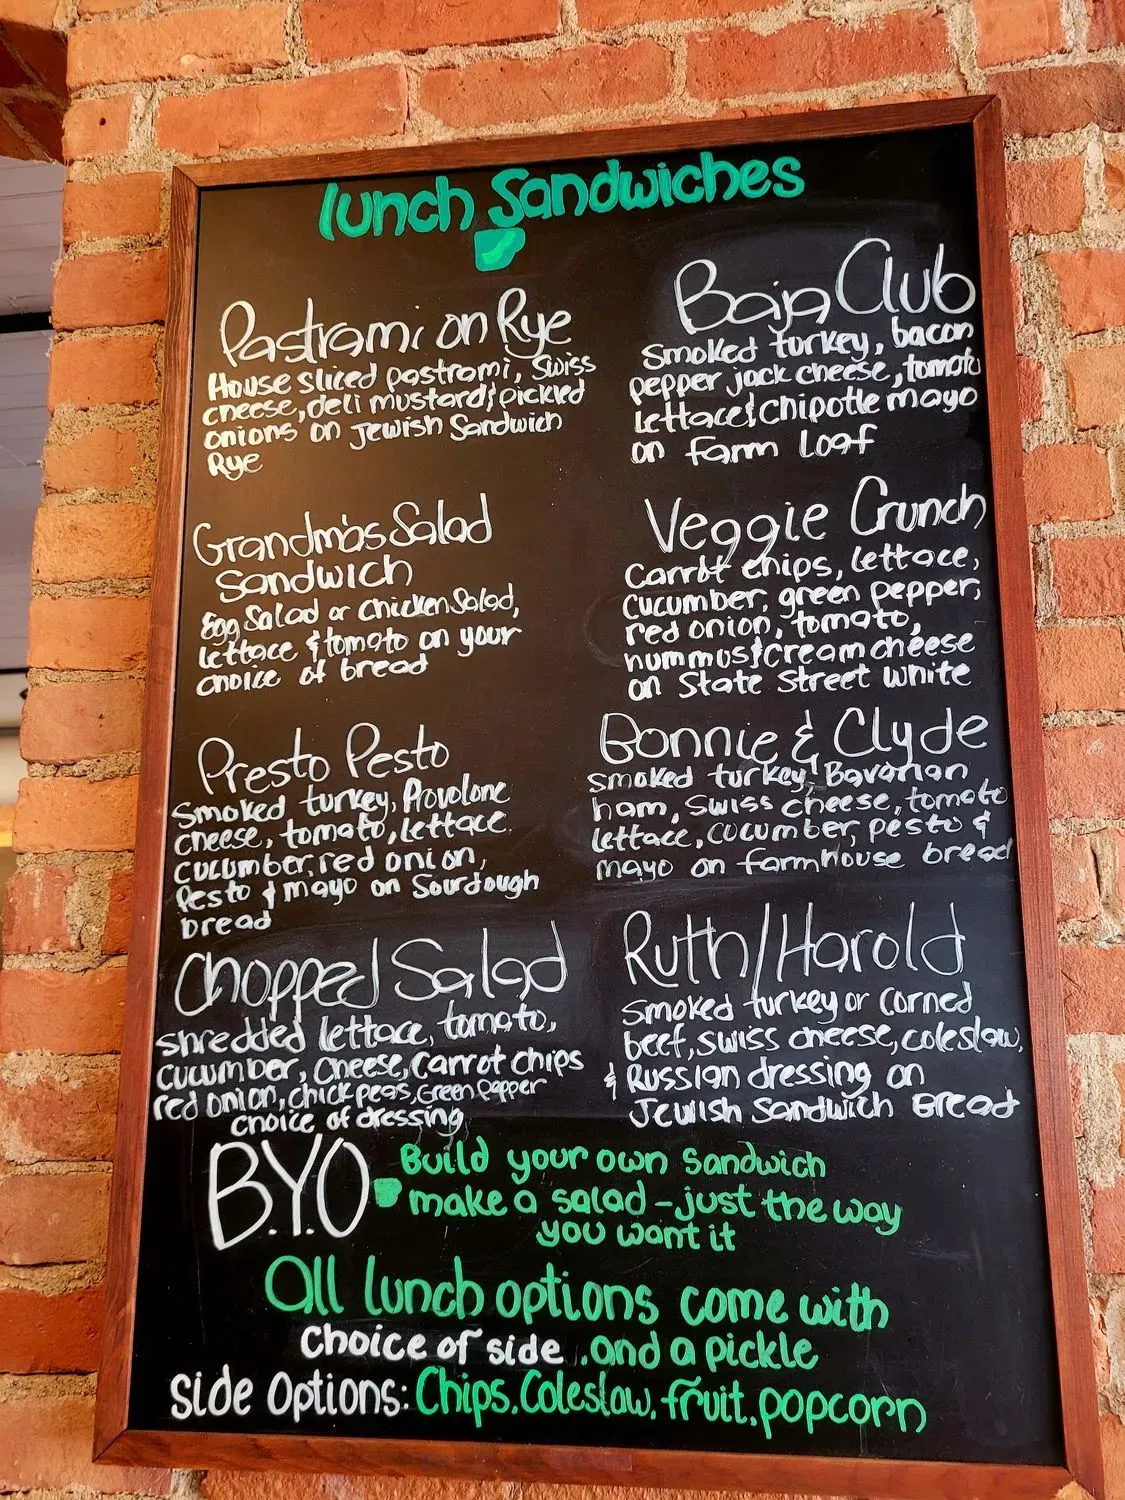 lunch Sandwiches
Pastrami on Rye
House sliced pastrami, Swiss
cheese, deli mustard & pickled
onions on Jewish Sandwich
Rye
Grandma's Salad
Sandwich
Egg Salad or Chicken Salad,
lettace & tomato on your
choice of bread
Presto Pesto
Smoked turkey, Provolone
cheese, tomato, lettace
cucumber, red onion,
Pesto & mayo on Sourdough
bread
Chopped Salad
shredded lettace, tomato,
cucumber, cheese, carrot chips
red onion, chick peas, Green Pepper
choice of dressing
Baja Club
Smoked turkey, bacon
pepper jack cheese, tomato
lettace & chipotle mayo
on Farm Loaf
Veggie Crunch
Carrot chips, lettace,
cucumber, green pepper,
red onion, tomato,
hummos & cream cheese
on State Street White
Bonnie & Clyde
smoked turkey, Bavarian
ham, Swiss cheese, tomato
lettace, cucumber, pesto &
mayo on farmhouse bread
Ruth/Harold
Smoked turkey or corned
beef, swiss cheese, coleslaw,
& Russian dressing on
Jewish Sandwich Bread
B.Y.O
Build your own sandwich
make a salad - just the way
you want it
All lunch options come with
Choice of side, and a pickle
Side Options: Chips, Coleslaw, fruit, popcorn